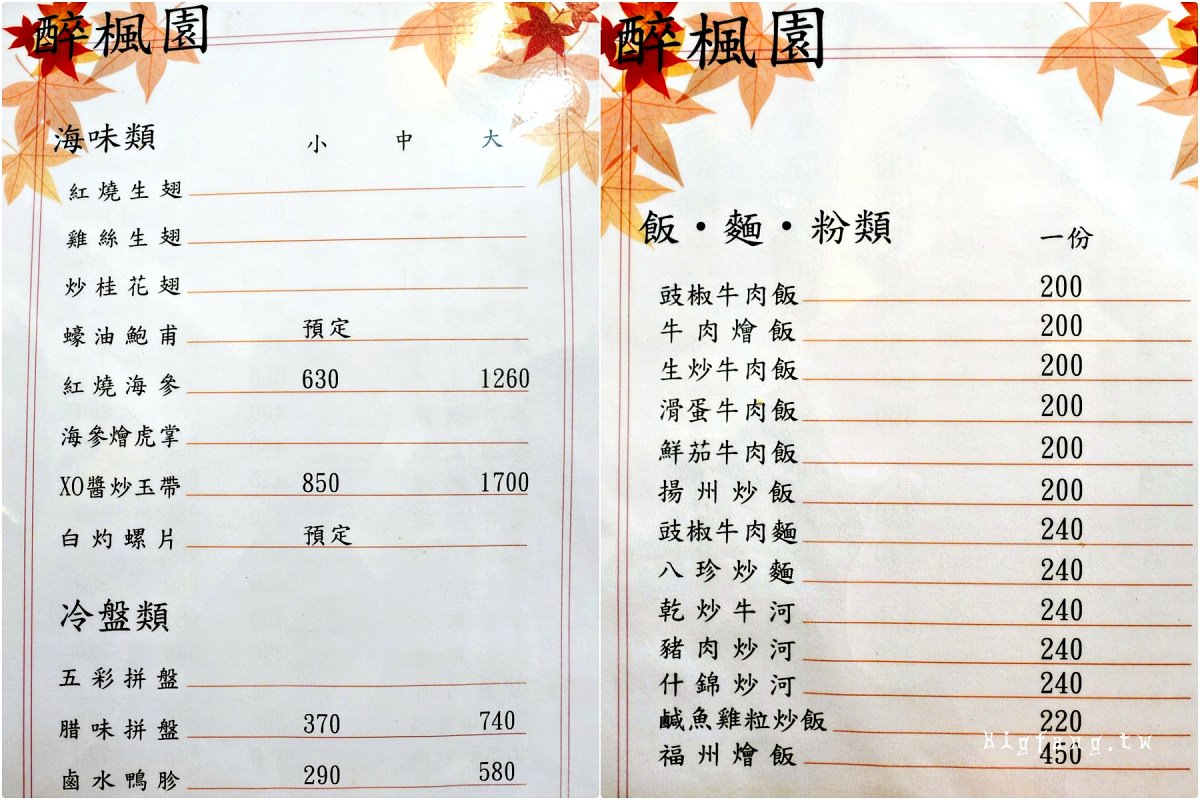 醉楓園
海味類 小 中 大
紅燒生翅
雞絲生翅
炒桂花翅
蠔油鮑甫 預定
紅燒海參 630 1260
海參燴虎掌
XO醬炒玉帶 850 1700
白灼螺片 預定
冷盤類
五彩拼盤
腊味拼盤 370 740
鹵水鴨胗 290 580
醉楓園
飯・麵・粉類 一份
豉椒牛肉飯 200
牛肉燴飯 200
生炒牛肉飯 200
滑蛋牛肉飯 200
鮮茄牛肉飯 200
揚州炒飯 200
豉椒牛肉麵 240
八珍炒麵 240
乾炒牛河 240
豬肉炒河 240
什錦炒河 240
鹹魚雞粒炒飯 220
福州燴飯 450
Bigfang.tw